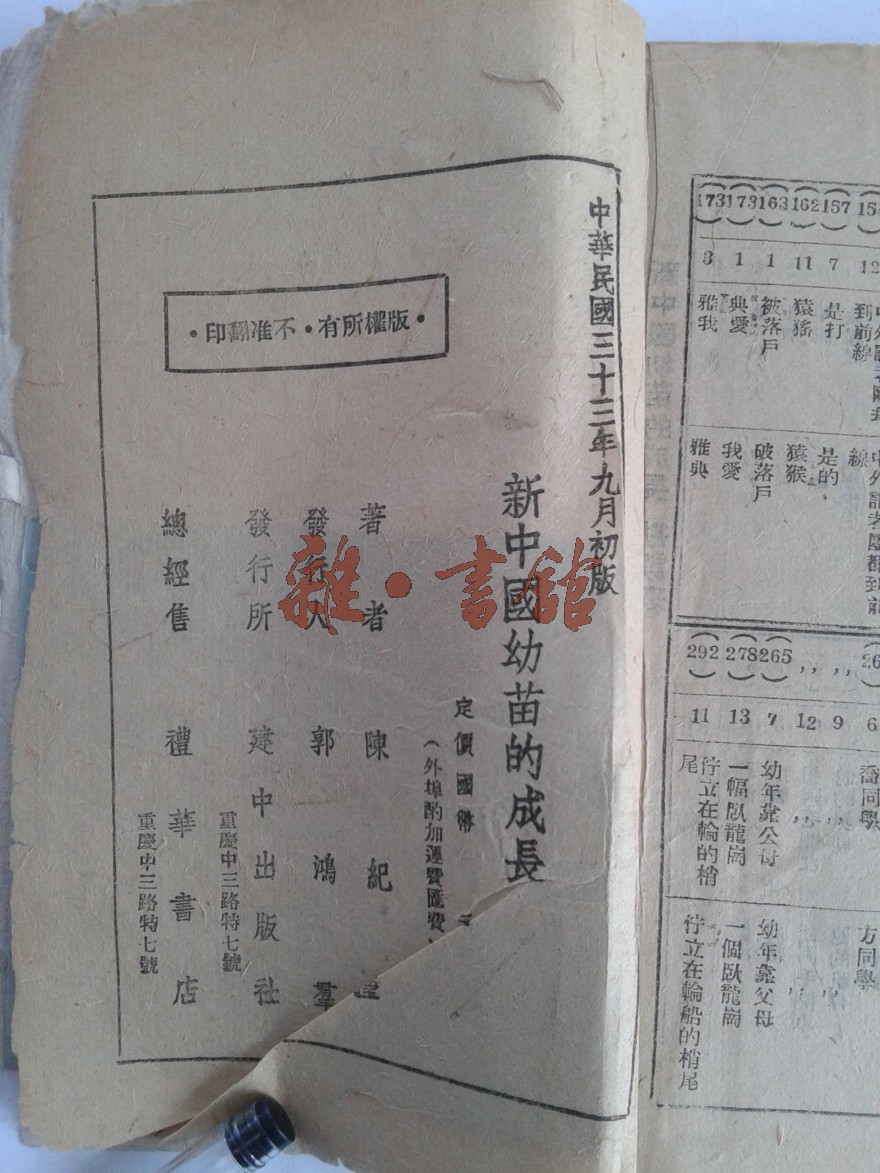 中華民國三十三年九月初版
新中國幼苗的成長
定價國幣
(外埠酌加運費匯費)
著者 陳紀瀅
發行人 郭鴻羣
發行所 建中出版社
重慶中三路特七號
總經售 禮華書店
重慶中三路特七號
•版權所有•不准翻印•
雜·書館
(157) 7 是打 是的
(162) 11 猿猺 猿猴
(163) 1 被落戶 破落戶
(173) 1 典愛 我愛
(173) 3 雅我 雅典
6 喬同學 方同學
,, 9 ,, ,,
,, 12 ,, ,,
(265) 7 幼年靠公母 幼年靠父母
(278) 13 一幅臥龍崗 一個臥龍崗
(292) 11 佇立在輪的梢尾 佇立在輪船的梢尾